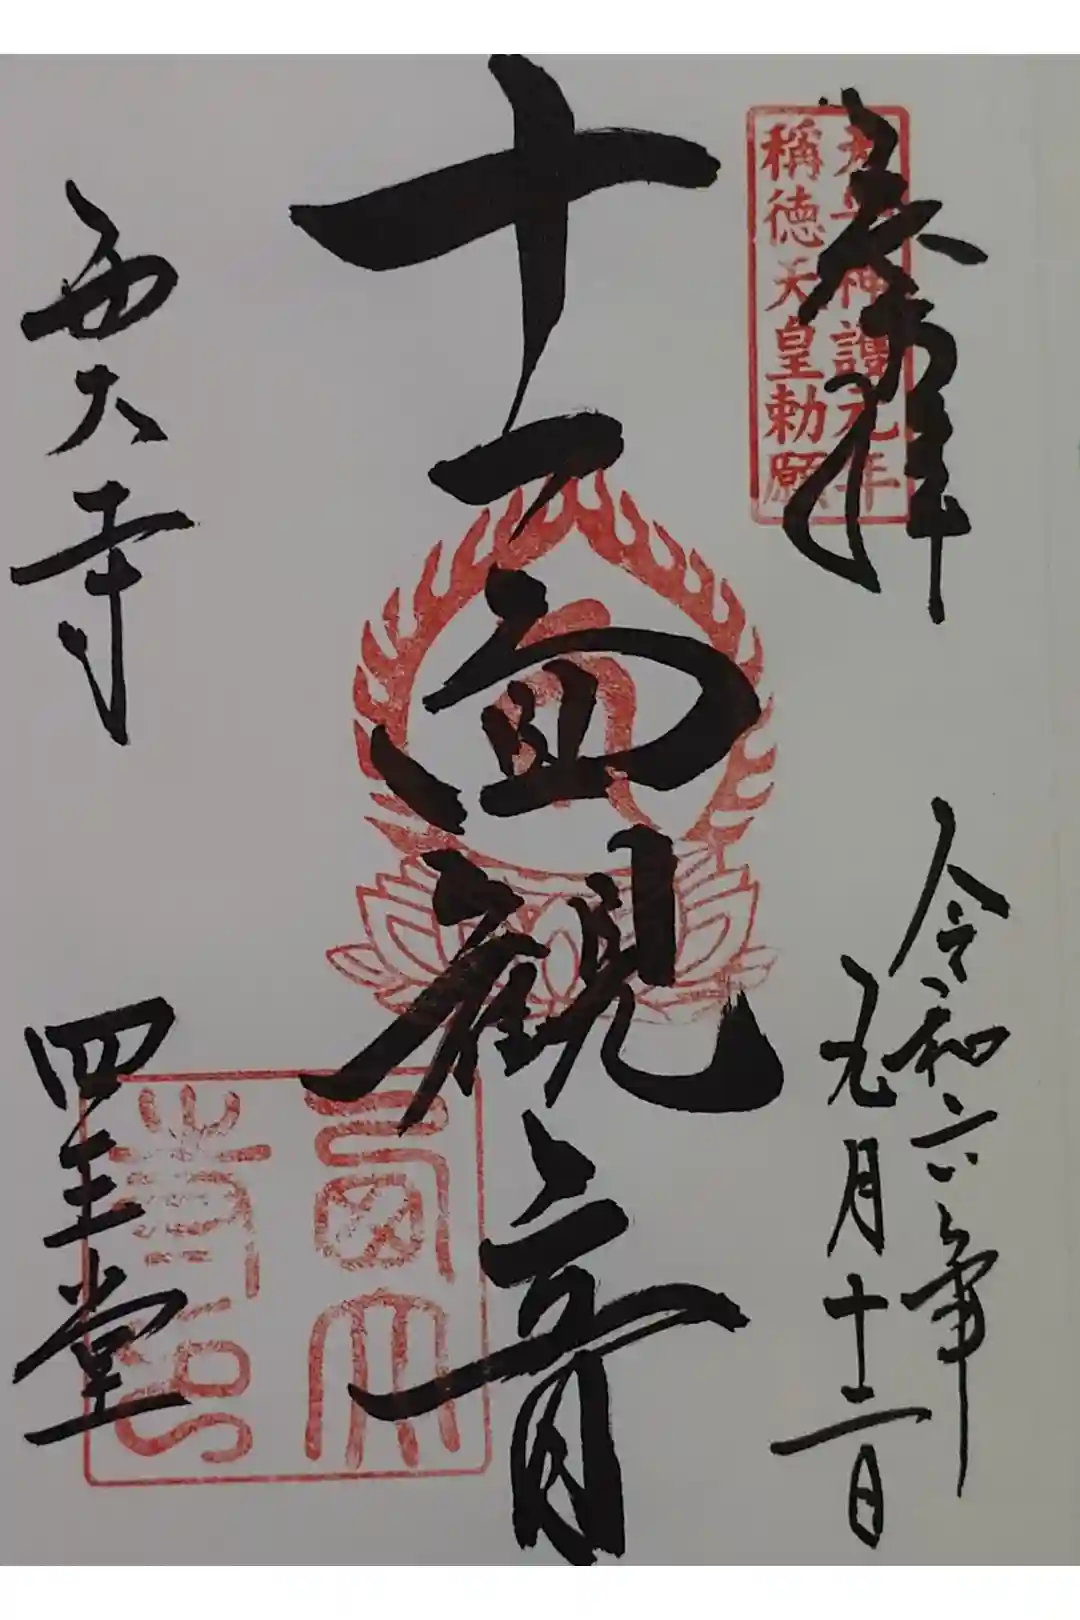 奉拝
天平神護元年
稱徳天皇勅願
令和六年
元月十二日
十一面観音
西大寺
四王堂